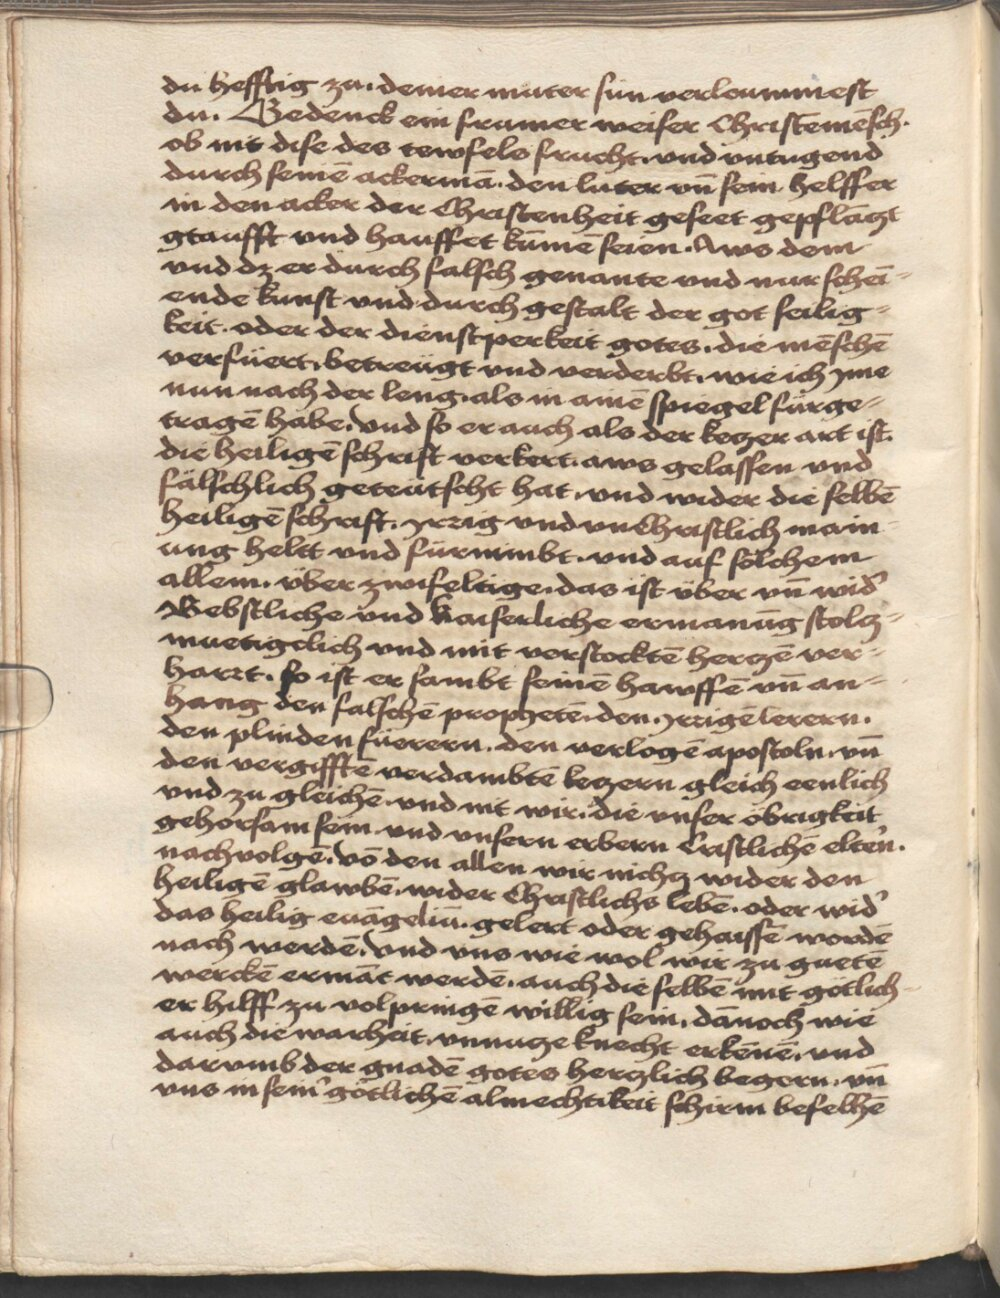 du hefftig zu. deiner muter sun verleummest
du. Bedenck ein frumer weiser Christemēsch.
ob nit dise des tewfels frucht. vnd vntugend
durch seinē ackermā. den luter vn̄ sein helffer
in den acker der Christenheit geseet gepflāczt
gtaufft vnd hauffet kūmē seien. Aws dem
vnd dz er durch falsch genante vnd nur schei-
ende kunst vnd durch gestalt der got seilig-
keit. oder der dienstperkeit gotes. die mēschē
verfüert. betreugt vnd verderbt. wie ich yme
nun nach der leng. als in ainē spiegel fürge-
tragē habe. Vnd so er auch als der keczer art ist.
die heiligē schrift verkert. aws gelassen vnd
fälschlich geteutscht hat. vnd wider die selbē
heiligē schrift. yrrig vnd vnChristlich main-
ung heltt vnd fürnimbt. vnd auf sölchem
allem. über zwifeltige. das ist über vn̄ wid'
Bebstliche vnd kaiserliche ermanūg stolcz-
muetigclich vnd mit verstocktē herczē ver-
harrt. so ist er sambt seinē hawffē vn̄ an-
hang den falschē prophetē. den yrrigē lerern.
den plinden füerern. den verlogē apostoln. vn̄
den vergifftē verdambtē keczern gleich eenlich
vnd zu gleichē. vnd nit wir. die vnser öbrigkeit
gehorsam sein. vnd vnsern erbern Cristlichē eltērn.
nachvolgē. Vō den allen wir nichcz wider den
heiligē glawbē. wider Christlichs lebē. oder wid'
das heilig euāgeliu. gelert oder gehaissē wordē
nach werdē. Vnd vns wie wol wir zu guetē
werckē ermāt werdē. auch die selbē mit gotlich-
er hilff zu volpringē willig sein. dānoch wie
auch die warheit. vnnucze knecht erkēnē. vnd
darumb der gnadē gotes herczlich begern. vn̄
vns in sein' götlichē almechtikeit schirm befelhē